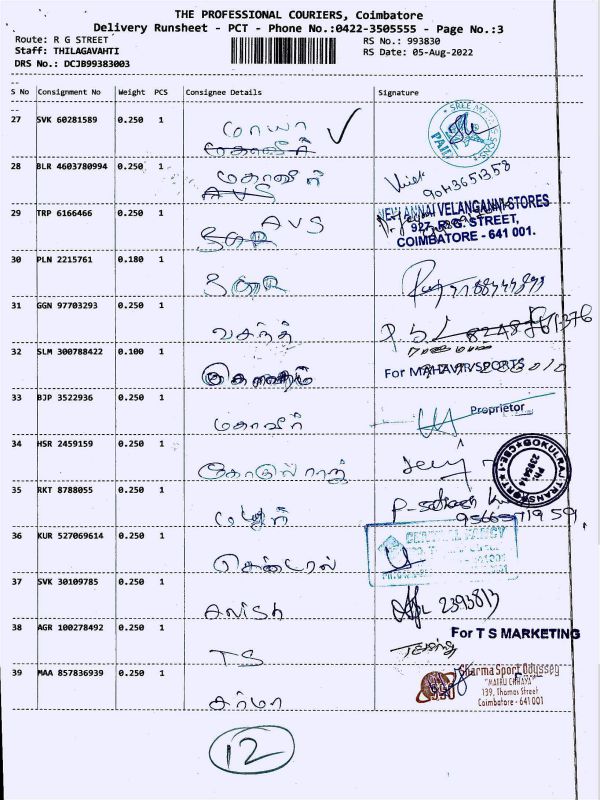 THE PROFESSIONAL COURIERS, Coimbatore
Delivery Runsheet - PCT - Phone No.:0422-3505555 - Page No.:3
Route: R G STREET
RS No.: 993830
Staff: THILAGAVAHTI
RS Date: 05-Aug-2022
DRS No.: DCJB99383003
S No Consignment No Weight PCS Consignee Details Signature
27 SVK 60281589 0.250 1 மாயா
PAID
28 BLR 4603780994 0.250 1 மகாவீர்
AVS
9043651358
29 TRP 6166466 0.250 1 AVS
NEW ANNAI VELANGANNI STORES
927, R. G. STREET,
COIMBATORE - 641 001.
30 PLN 2215761 0.180 1
31 GGN 97703293 0.250 1 வசந்த்
32 SLM 300788422 0.100 1
For MAHAVIR SPORTS
33 BJP 3522936 0.250 1 மகாவீர்
Proprietor
34 HSR 2459159 0.250 1 கோகுல்ராஜ்
GOKULRAJ TRANSPORT
35 RKT 8788055 0.250 1
36 KUR 527069614 0.250 1 சென்ட்ரல்
CENTRAL FANCY
37 SVK 30109785 0.250 1 anish
2393813
38 AGR 100278492 0.250 1 TS
For T S MARKETING
39 MAA 857836939 0.250 1 சர்மா
Sharma Sport Odyssey
"MATRU CHHAYA"
139, Thomas Street
Coimbatore - 641 001
12